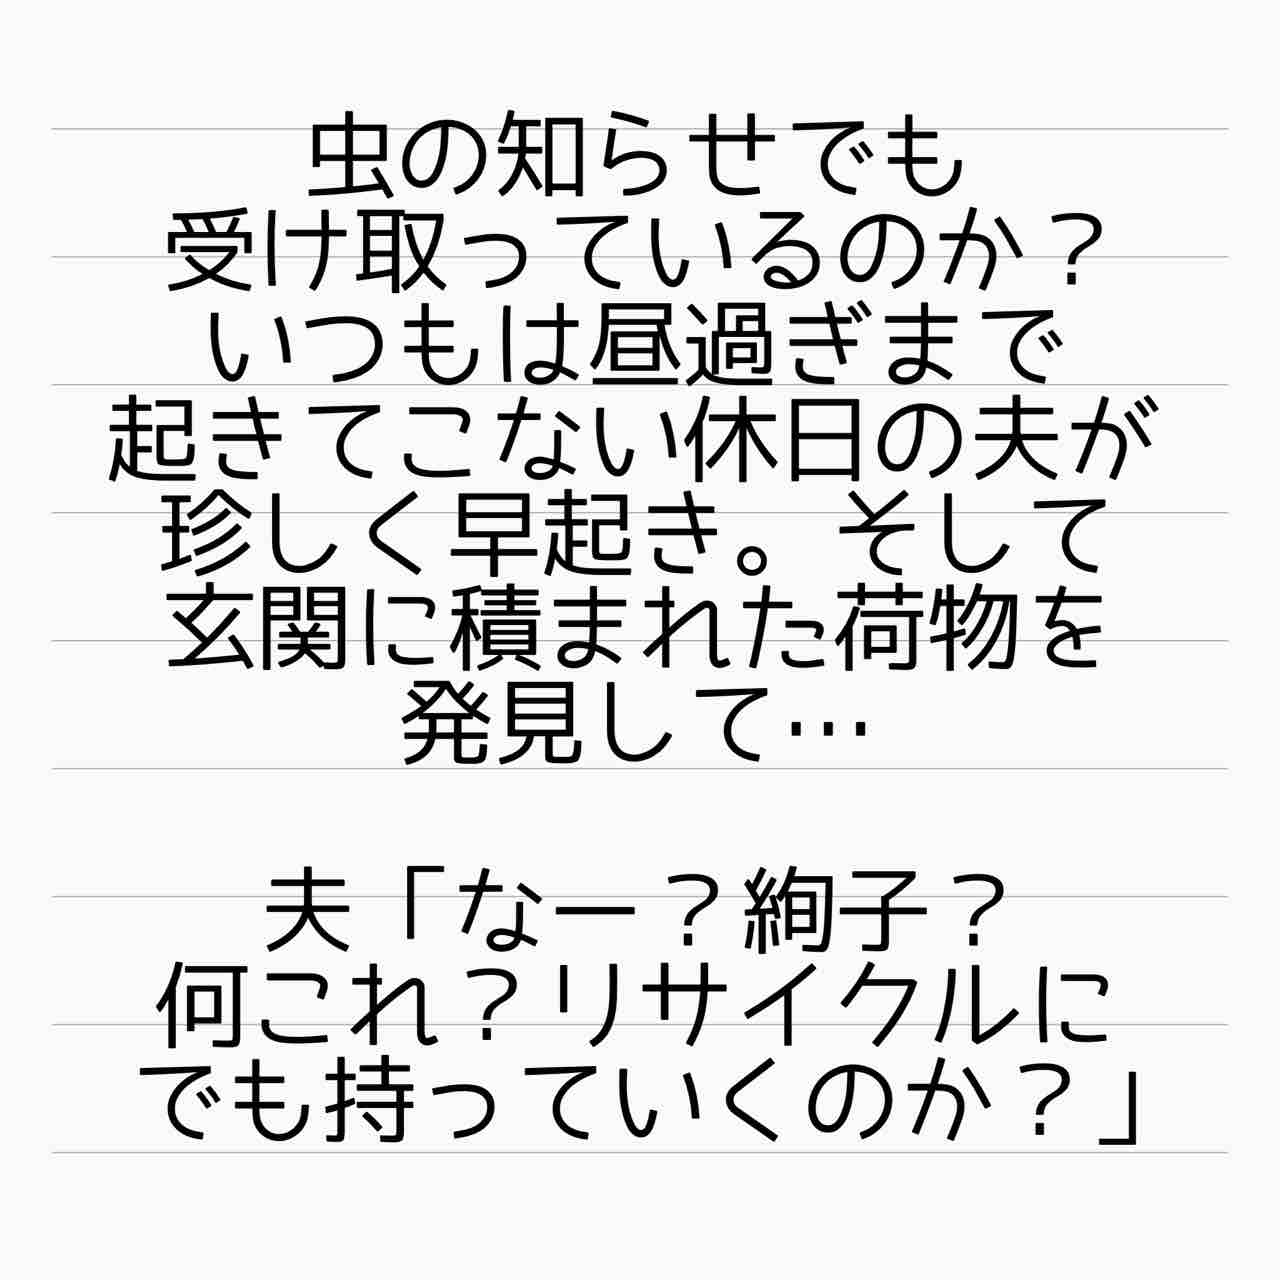 虫の知らせでも
受け取っているのか？
いつもは昼過ぎまで
起きてこない休日の夫が
珍しく早起き。そして
玄関に積まれた荷物を
発見して…
夫「なー？絢子？
何これ？リサイクルに
でも持っていくのか？」